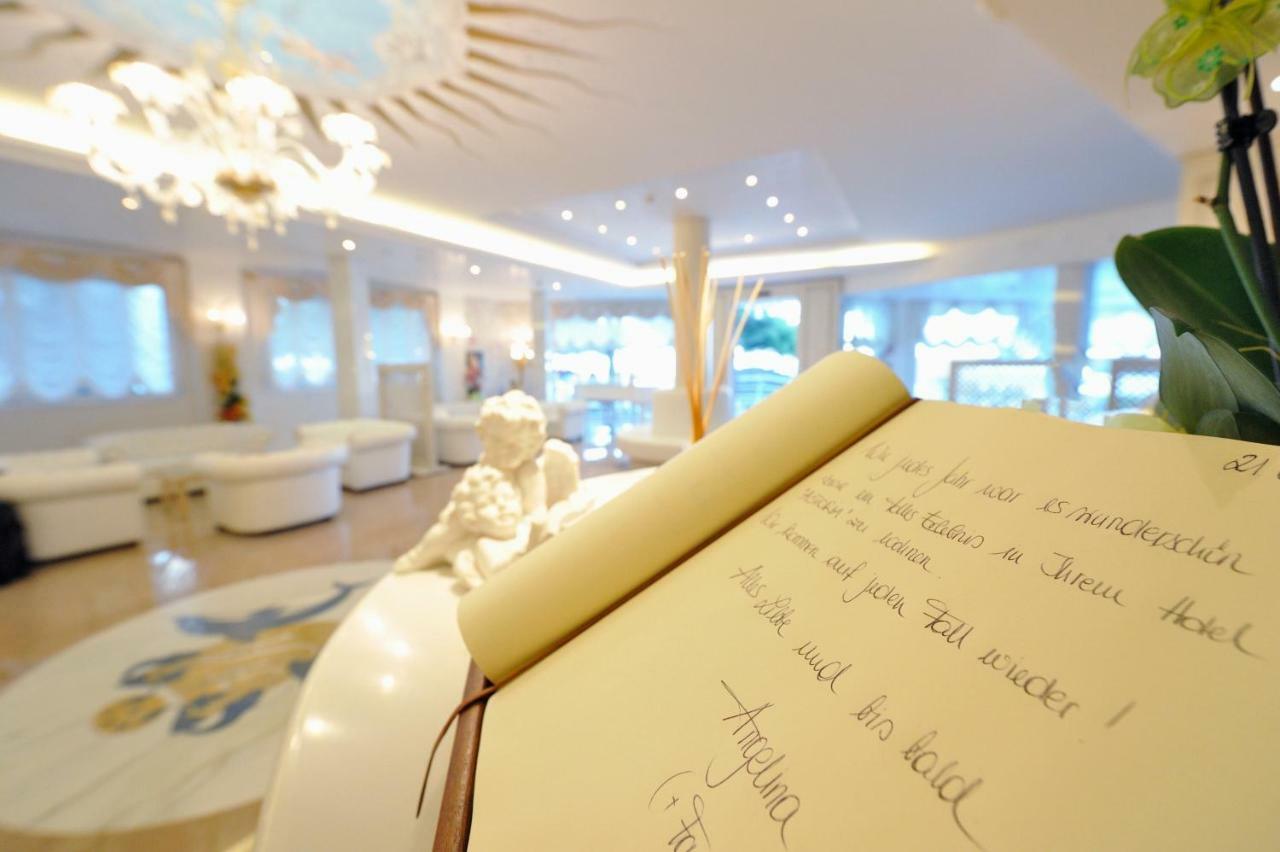 21
Wie jedes Jahr war es wunderschön
und ein tolles Erlebnis in Ihrem Hotel
zu wohnen.
Wir kommen auf jeden Fall wieder!
Alles Liebe und bis bald
Angelina
(+ Fa